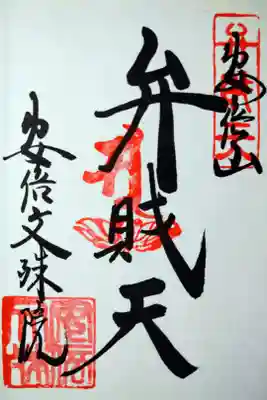 安倍山
弁財天
安倍文殊院